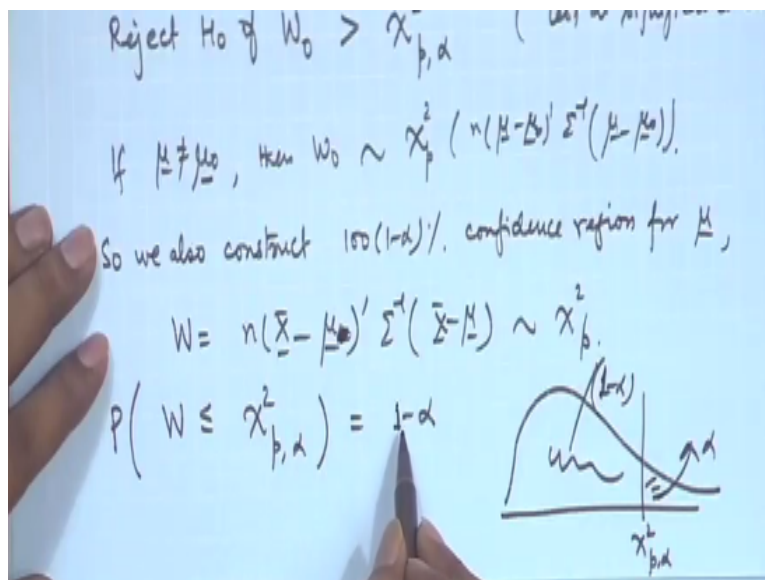 Reject Ho of W₀ > χ²ₚ,α (
If μ ≠ μ₀, then W₀ ~ χ²ₚ (n(μ-μ₀)' Σ⁻¹(μ-μ₀)).
So we also construct 100(1-α)%. confidence region for μ,
W = n(x̄ - μ)' Σ⁻¹(x̄-μ) ~ χ²ₚ.
P( W ≤ χ²ₚ,α ) = 1-α
(1-α)
α
χ²ₚ,α